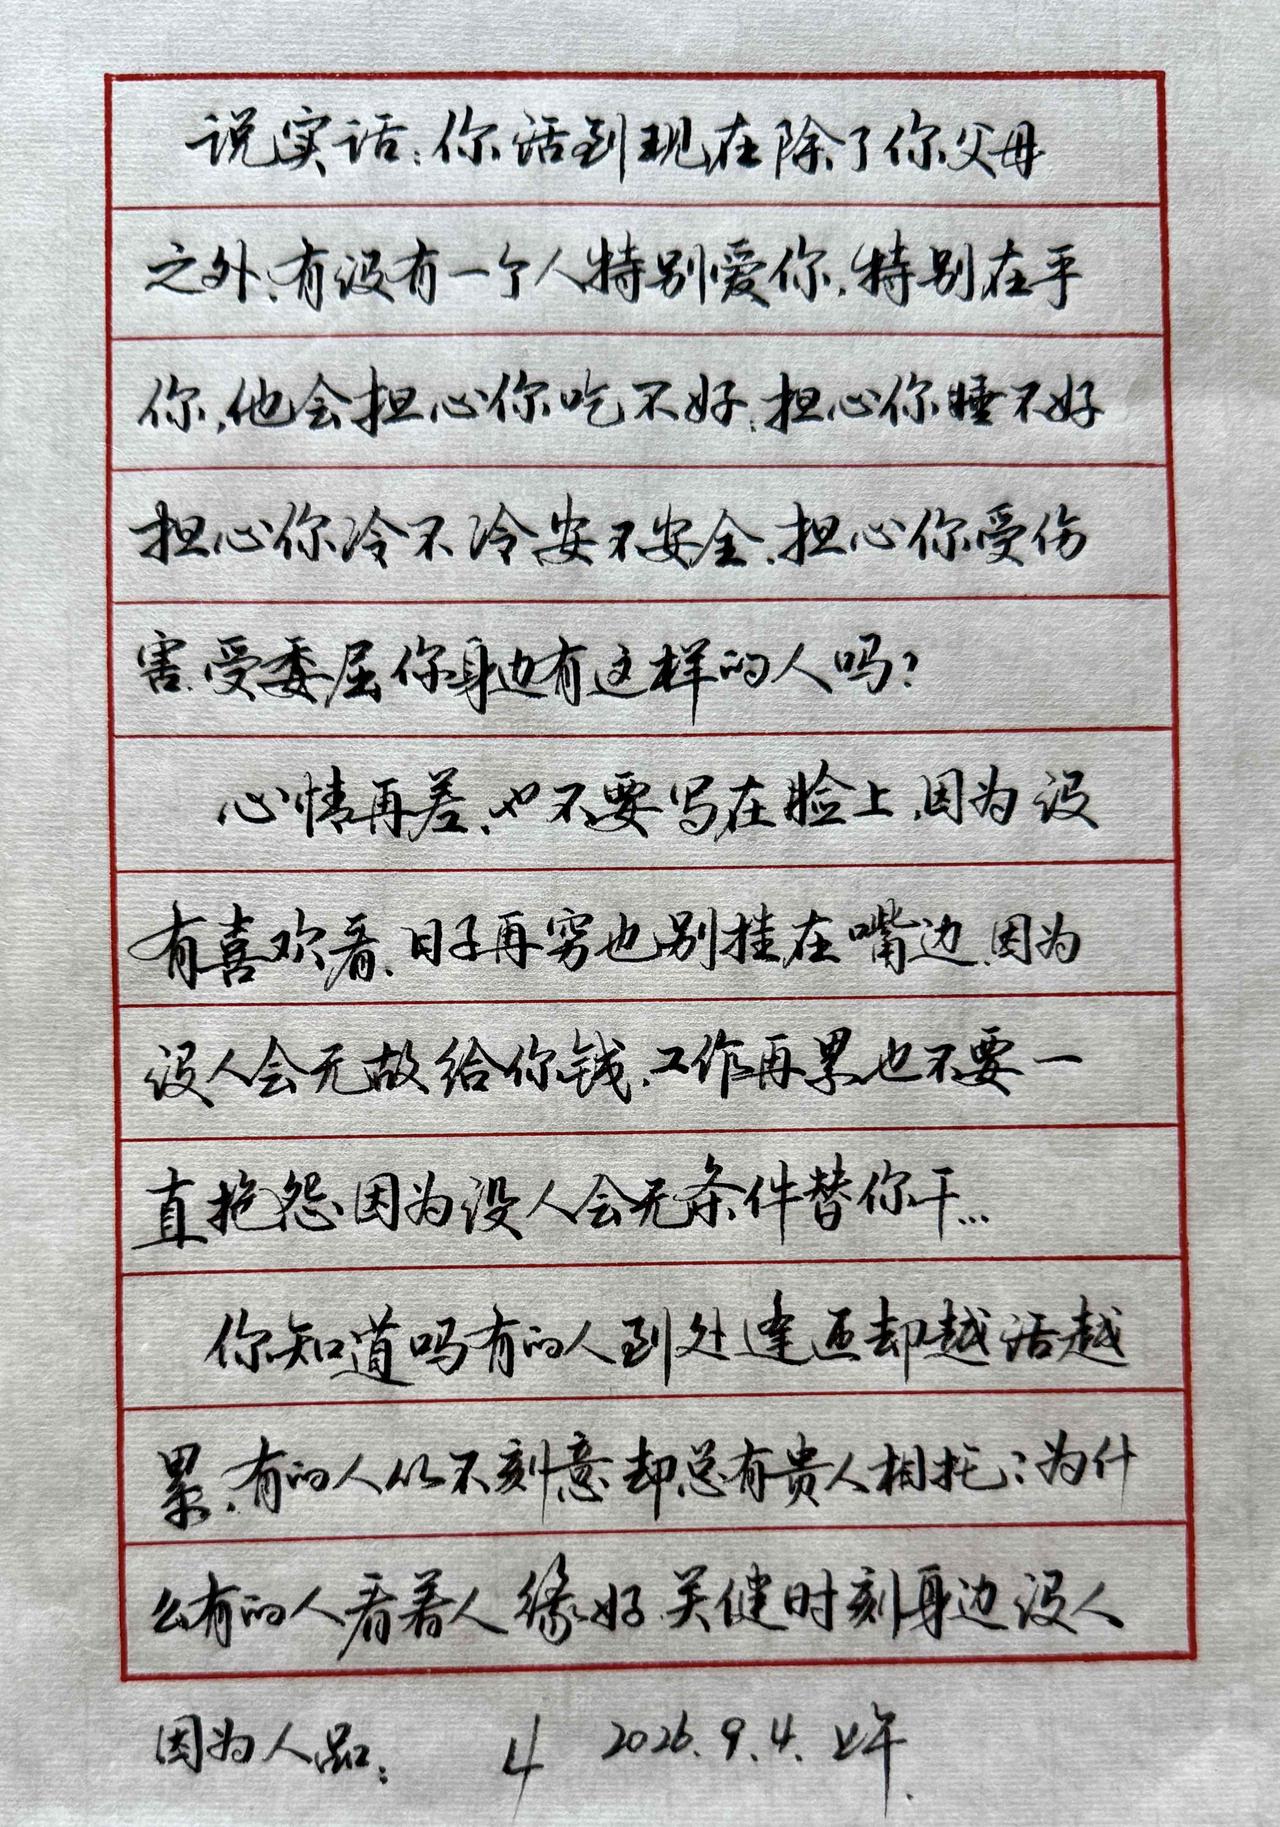 说实话：你活到现在除了你父母
之外，有没有一个人特别爱你，特别在乎
你，他会担心你吃不好，担心你睡不好
担心你冷不冷安不安全，担心你受伤
害，受委屈你身边有这样的人吗？
心情再差，也不要写在脸上，因为没
有喜欢看，日子再穷也别挂在嘴边，因为
没人会无故给你钱，工作再累也不要一
直抱怨，因为没人会无条件替你干…
你知道吗有的人到处逢迎却越活越
累，有的人从不刻意却总有贵人相托；为什
么有的人看着人缘好，关健时刻身边没人
因为人品； 2026.9.4.上午.